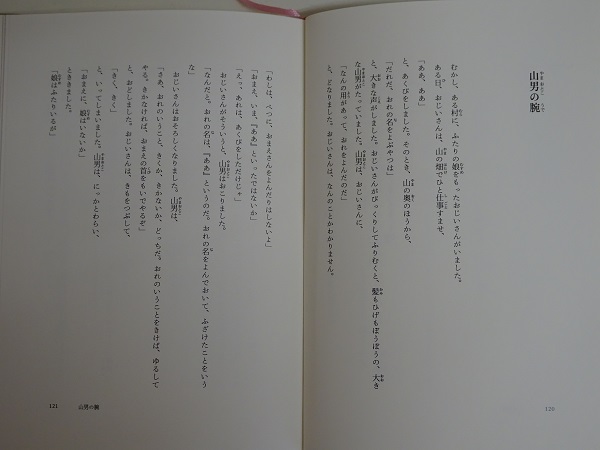 山男の腕
むかし、ある村に、ふたりの娘をもったおじいさんがいました。
ある日、おじいさんは、山の畑でひと仕事すませ、
「ああ、ああ」
と、あくびをしました。そのとき、山の奥のほうから、
「だれだ、おれの名をよぶやつは」
と、大きな声がしました。おじいさんがびっくりしてふりむくと、髪もひげもぼうぼうの、大き
な山男がたっていました。山男は、おじいさんに、
「なんの用があって、おれをよんだのだ」
と、どなりました。おじいさんは、なんのことかわかりません。
120
「わしは、べつに、おまえさんをよんだりはしないよ」
「おまえ、いま、『ああ』といったではないか」
「えっ、あれは、あくびをしただけじゃ」
おじいさんがそういうと、山男はおこりました。
「なんだと。おれの名は、『ああ』というのだ。おれの名をよんでおいて、ふざけたことをいう
な」
おじいさんはおそろしくなりました。山男は、
「さあ、おれのいうこと、きくか、きかないか、どっちだ。おれのいうことをきけば、ゆるして
やる。きかなければ、おまえの首をもいでやるぞ」
と、おどしました。おじいさんは、きもをつぶして、
「きく、きく」
と、いってしまいました。山男は、にっかとわらい、
「おまえに、娘はいないか」
とききました。
「娘はふたりいるが」
121 山男の腕